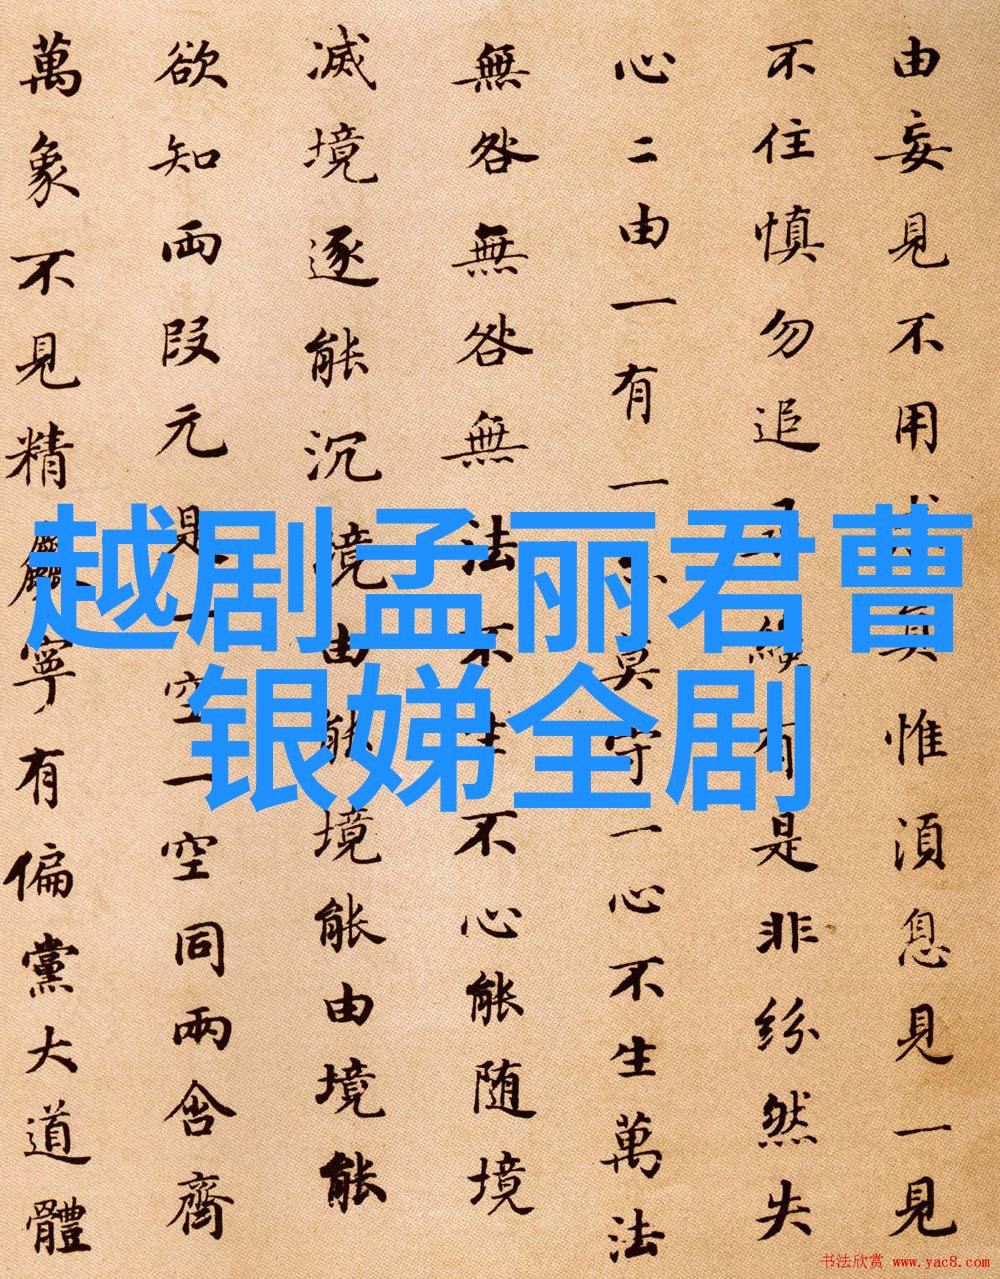 越剧孟丽君曹
银娣全剧
由妄見不用真惟湏息見一見
不住慎勿追有是非紛然失
心二由一有一亦莫守一心不生萬法
無咎無咎無法不生不心能随境
滅境逐能沉境由能境能由境能
欲知两段元是一空一空同兩含齊
萬象不見精麤寧有偏黨大道體
书法欣赏 www.yac8.com